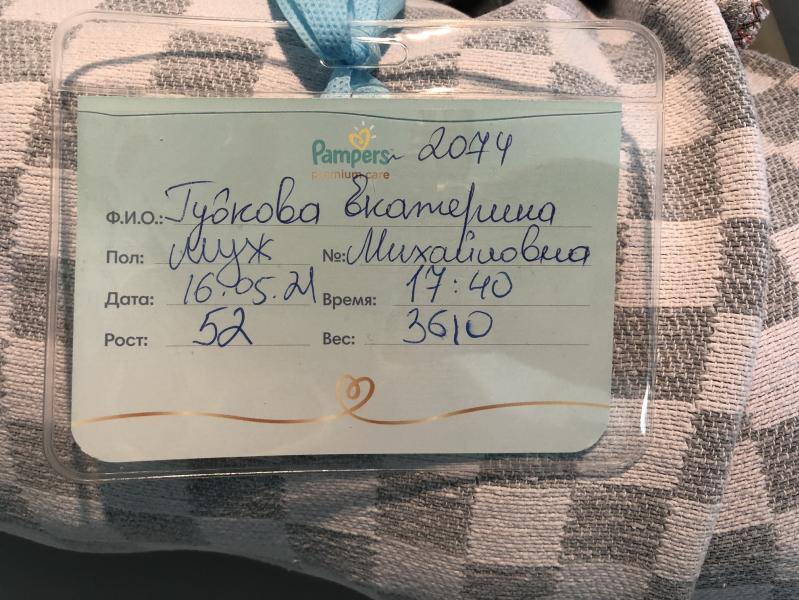 Pampers 2074
premium care
Ф.И.О.: Губкова Екатерина
Пол: муж №: Михайловна
Дата: 16.05.21 Время: 17:40
Рост: 52 Вес: 3610